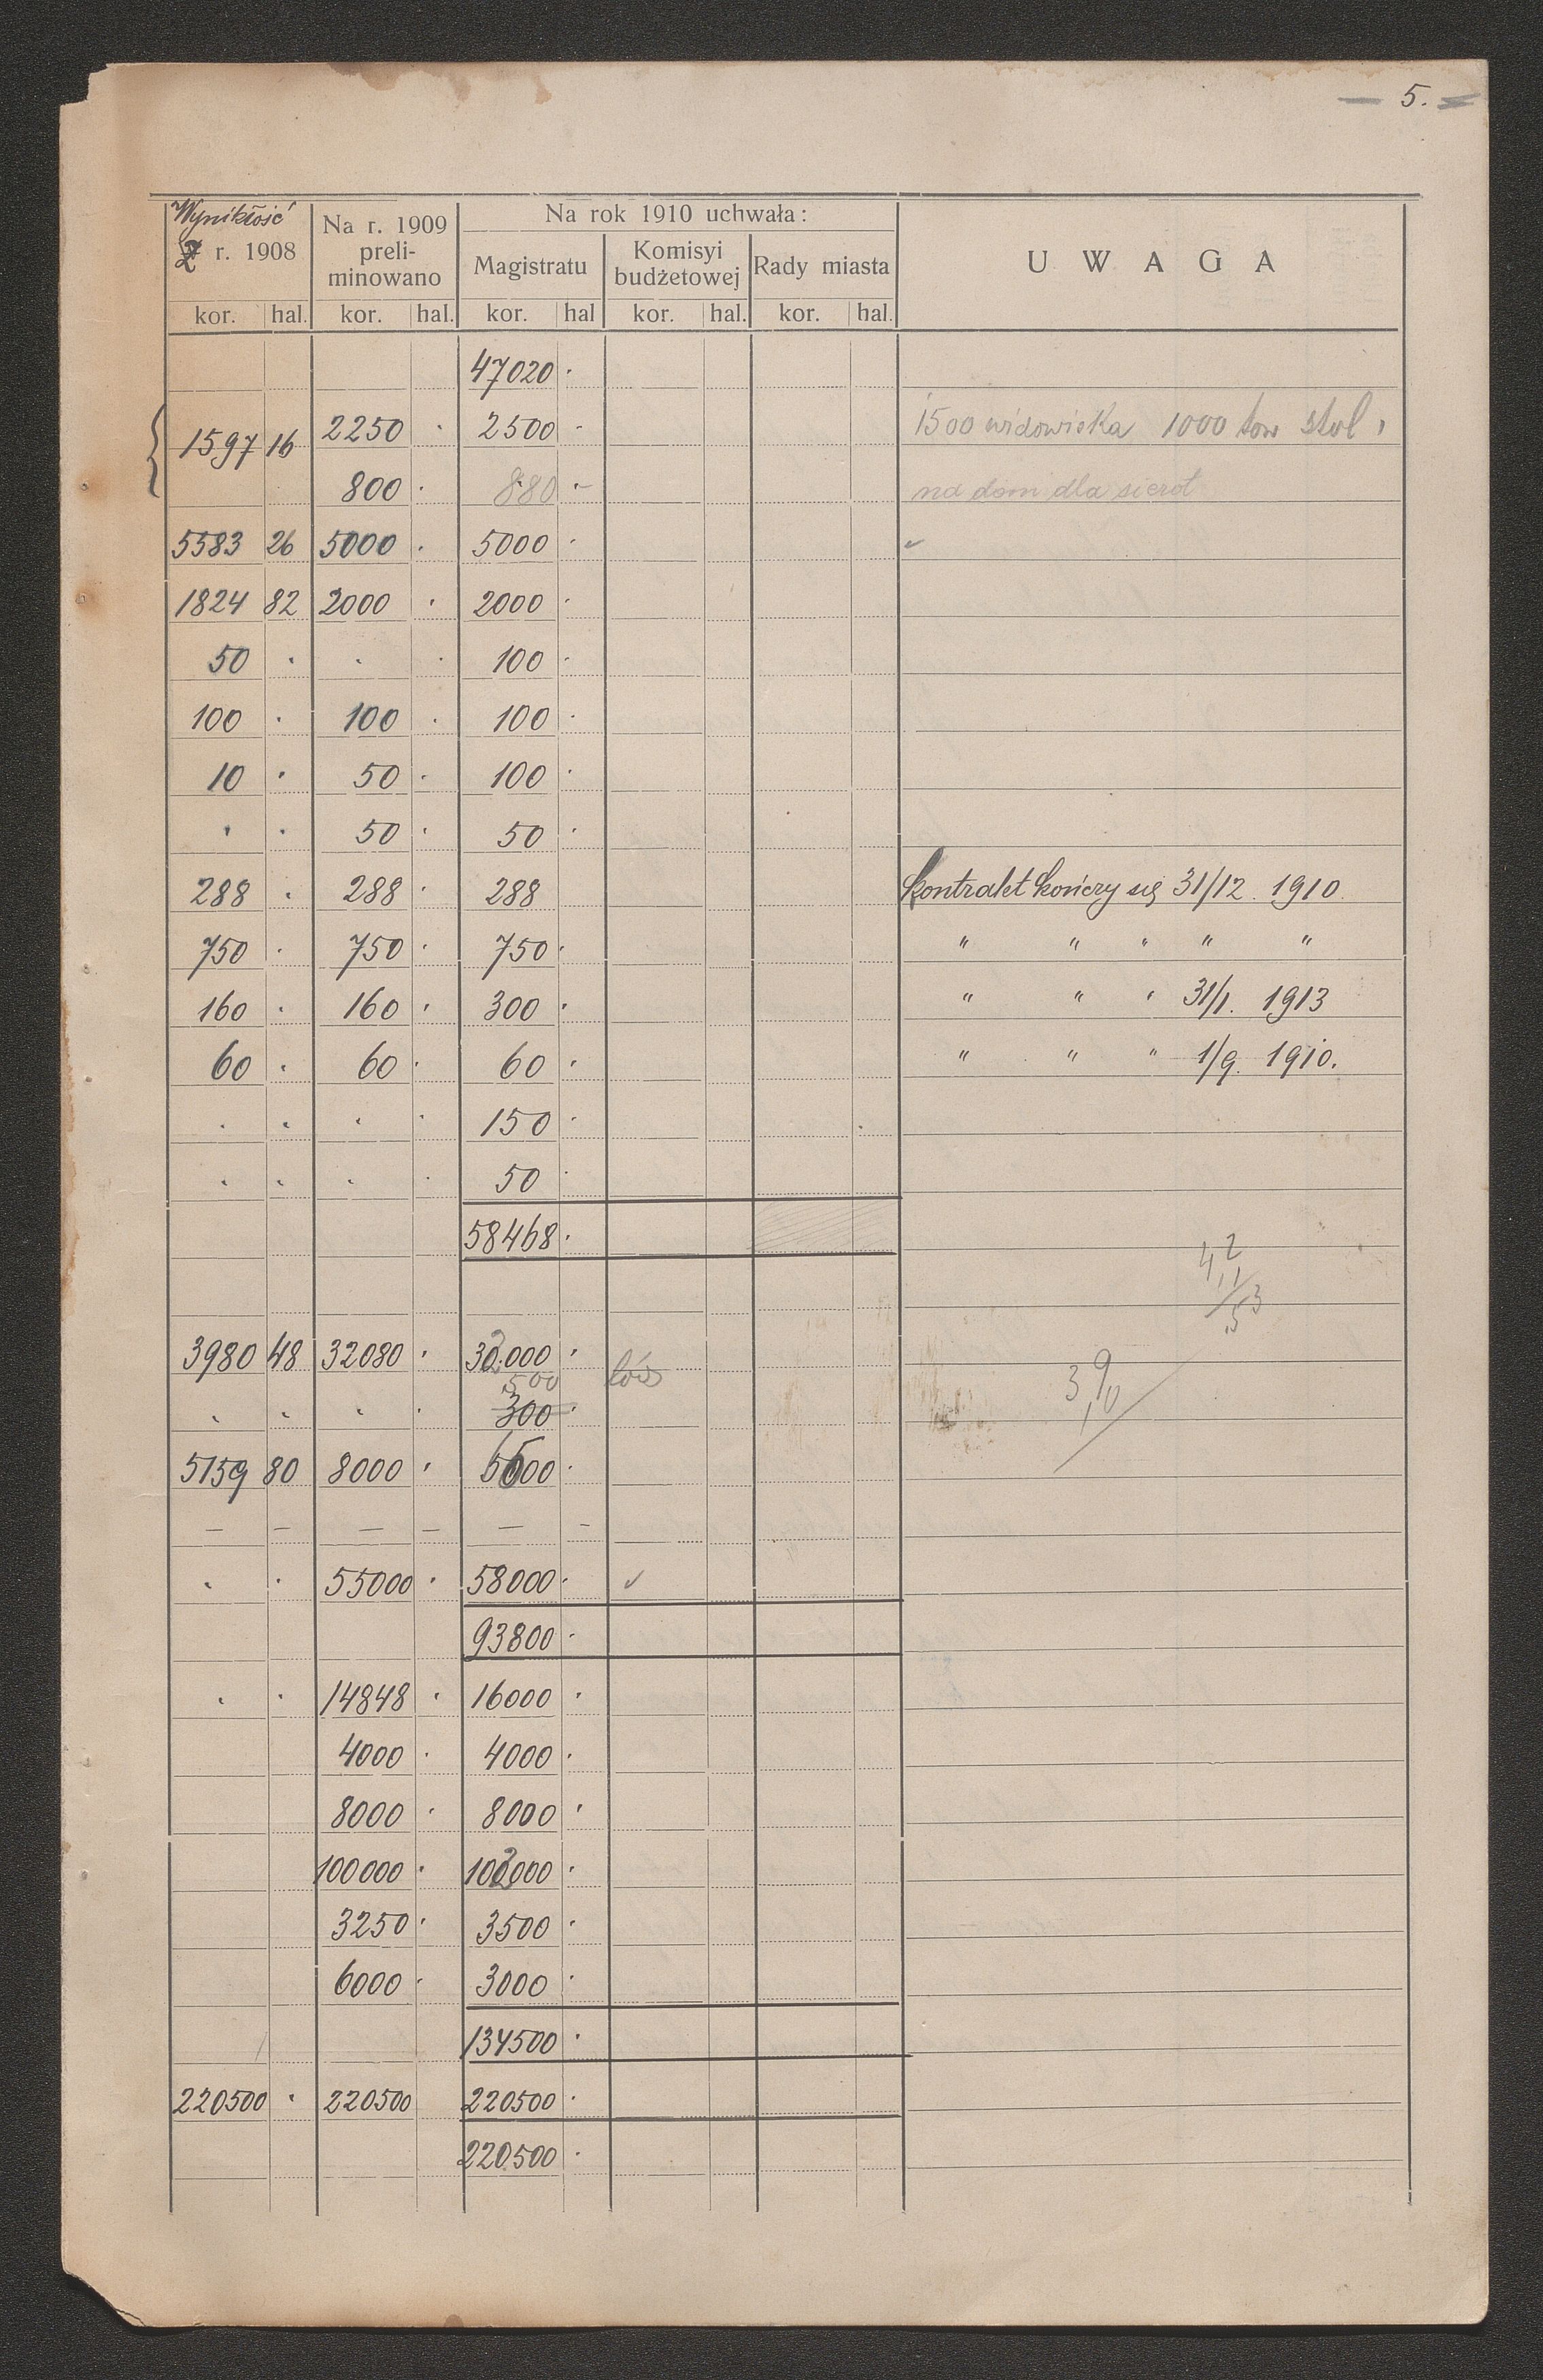 5.
Wynikłość Na r. 1909 Na rok 1910 uchwała:
Z r. 1908 preliminowano Magistratu Komisyi budżetowej Rady miasta UWAGA
kor. hal. kor. hal. kor. hal kor. hal. kor. hal.
47020 ·
1597 16 2250 · 2500 · 1500 widowiska 1000 tow stol
800 · 880 · na dom dla sierot
5583 26 5000 · 5000 ·
1824 82 2000 · 2000 ·
50 · · · 100 ·
100 · 100 · 100 ·
10 · 50 · 100 ·
· · 50 · 50 ·
288 · 288 · 288 kontrakt kończy się 31/12. 1910
750 · 750 · 750 · " " " " "
160 · 160 · 300 · " " " 31/1. 1913
60 · 60 · 60 · " " " 1/9. 1910.
· · · · 150 ·
· · · · 50 ·
58468 ·
42
3980 48 32080 · 32000 ·
500
· · · · 300 ·
5159 80 8000 · 5500 ·
— — — — — —
· · 55000 · 58000 · ✓
93800 ·
· · 14848 · 16000 ·
4000 · 4000 ·
8000 · 8000 ·
100000 · 102000 ·
3250 · 3500 ·
6000 · 3000 ·
134500 ·
220500 · 220500 220500 ·
220500 ·